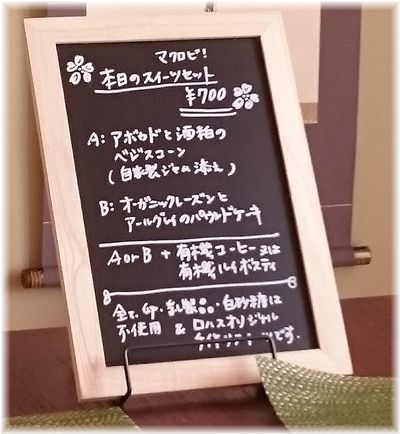 マクロビ!
本日のスイーツセット
¥700
A: アボカドと酒粕の
ベジスコーン
(自家製ジャム添え)
B: オーガニックレーズンと
アールグレイのパウンドケーキ
A or B + 有機コーヒー又は
有機ルイボスティ
全て、卵・乳製品・白砂糖は
不使用 & ロハスオリジナル
スイーツです。